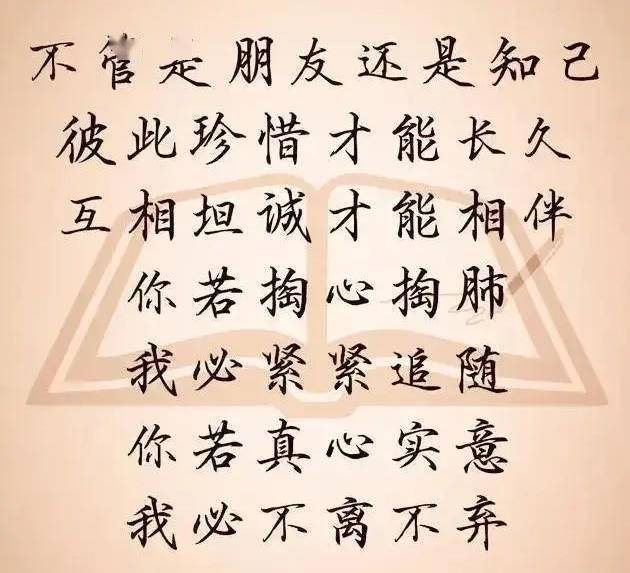 不管是朋友还是知己
彼此珍惜才能长久
互相坦诚才能相伴
你若掏心掏肺
我必紧紧追随
你若真心实意
我必不离不弃